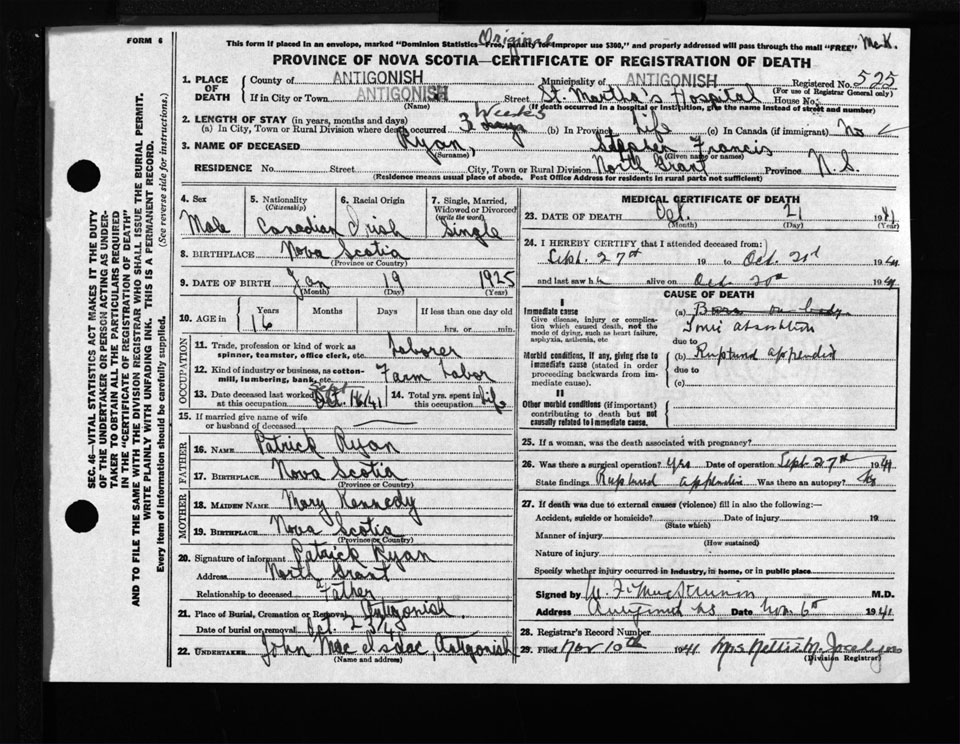 FORM 6
Original
This form if placed in an envelope, marked "Dominion Statistics—Free, penalty for improper use $300," and properly addressed will pass through the mail "FREE" McK.
PROVINCE OF NOVA SCOTIA—CERTIFICATE OF REGISTRATION OF DEATH
SEC. 46—VITAL STATISTICS ACT MAKES IT THE DUTY
OF THE UNDERTAKER OR PERSON ACTING AS UNDER-
TAKER TO OBTAIN ALL THE PARTICULARS REQUIRED
IN THE "CERTIFICATE OF REGISTRATION OF DEATH"
AND TO FILE THE SAME WITH THE DIVISION REGISTRAR WHO SHALL ISSUE THE BURIAL PERMIT.
WRITE PLAINLY WITH UNFADING INK. THIS IS A PERMANENT RECORD.
Every item of information should be carefully supplied. (See reverse side for instructions.)
1. PLACE OF DEATH County of ANTIGONISH Municipality of ANTIGONISH Registered No. 525
(For use of Registrar General only)
If in City or Town ANTIGONISH Street St. Martha's Hospital House No.
(If death occurred in a hospital or institution, give the name instead of street and number)
2. LENGTH OF STAY (in years, months and days)
(a) In City, Town or Rural Division where death occurred 3 Weeks days (b) In Province Life (c) In Canada (if immigrant) No
(Name)
3. NAME OF DECEASED Ryan, Stephen Francis
(Surname) (Given name or names)
RESIDENCE No. Street City, Town or Rural Division North Grant Province N.S.
(Residence means usual place of abode. Post Office Address for residents in rural parts not sufficient)
4. Sex Male
5. Nationality (Citizenship) Canadian
6. Racial Origin Irish
7. Single, Married, Widowed or Divorced (write the word) Single
8. BIRTHPLACE Nova Scotia
(Province or Country)
9. DATE OF BIRTH Jan 19 1925
(Month) (Day) (Year)
10. AGE in Years Months Days If less than one day old
16 hrs. or min.
OCCUPATION
11. Trade, profession or kind of work as spinner, teamster, office clerk, etc. Laborer
12. Kind of industry or business, as cotton-mill, lumbering, bank, etc. Farm Labor
13. Date deceased last worked at this occupation Sept Oct. 16/41
14. Total yrs. spent in this occupation Life
15. If married give name of wife or husband of deceased
FATHER
16. NAME Patrick Ryan
17. BIRTHPLACE Nova Scotia
(Province or Country)
MOTHER
18. MAIDEN NAME Mary Kennedy
19. BIRTHPLACE Nova Scotia
(Province or Country)
20. Signature of informant Patrick Ryan
Address North Grant
Relationship to deceased Father
21. Place of Burial, Cremation or Removal Antigonish
Date of burial or removal Oct 23/41
22. UNDERTAKER John MacIsaac Antigonish
(Name and address)
MEDICAL CERTIFICATE OF DEATH
23. DATE OF DEATH Oct. 21 1941
(Month) (Day) (Year)
24. I HEREBY CERTIFY that I attended deceased from:
Sept. 27th 19 to Oct. 21st 1941
and last saw h alive on Oct. 20th 1941
CAUSE OF DEATH
I
Immediate cause
Give disease, injury or complication which caused death, not the mode of dying, such as heart failure, asphyxia, asthenia, etc
(a)
Toxic absorption
due to
Morbid conditions, if any, giving rise to immediate cause (stated in order proceeding backwards from immediate cause).
(b) Ruptured appendix
due to
(c)
II
Other morbid conditions (if important) contributing to death but not causally related to immediate cause.
25. If a woman, was the death associated with pregnancy?
26. Was there a surgical operation? Yes Date of operation Sept. 27th 1941
State findings Ruptured appendix Was there an autopsy? No
27. If death was due to external causes (violence) fill in also the following:—
Accident, suicide or homicide? Date of injury 19
(State which)
Manner of injury
(How sustained)
Nature of injury
Specify whether injury occurred in industry, in home, or in public place
Signed by M.D.
Address Antigonish NS Date Nov. 6th 1941
28. Registrar's Record Number
29. Filed Nov 10th 1941 Mrs Nellie M.
(Division Registrar)